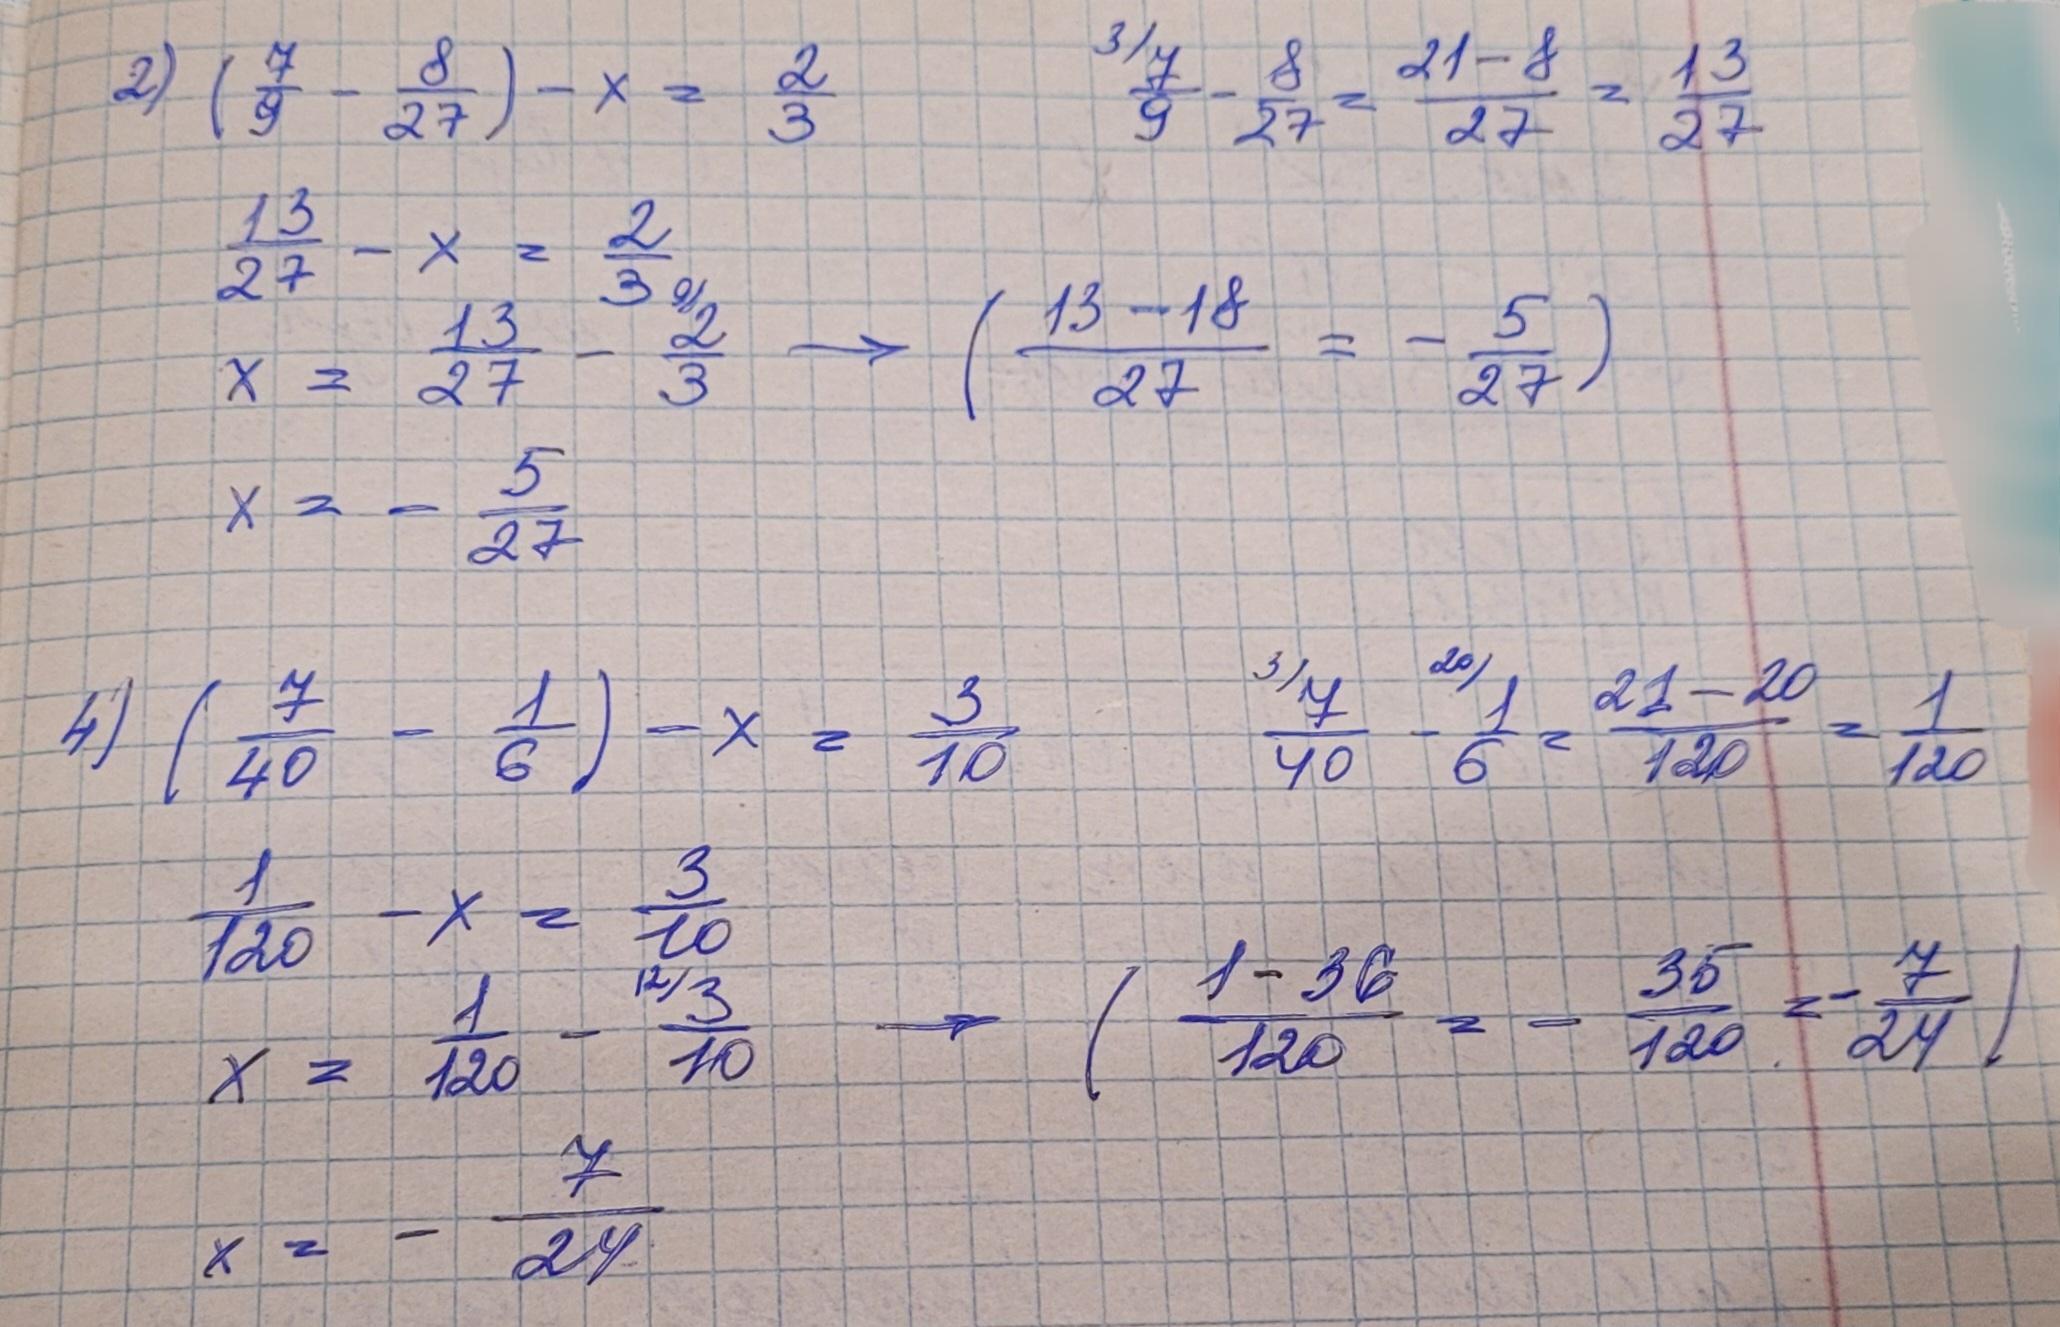 2) (7/9 - 8/27) - x = 2/3
3/ 7/9 - 8/27 = (21-8)/27 = 13/27
13/27 - x = 2/3
x = 13/27 - 9/ 2/3 → ((13-18)/27 = -5/27)
x = -5/27
4) (7/40 - 1/6) - x = 3/10
3/ 7/40 - 20/ 1/6 = (21-20)/120 = 1/120
1/120 - x = 3/10
x = 1/120 - 12/ 3/10 → ((1-36)/120 = -35/120 = -7/24)
x = -7/24